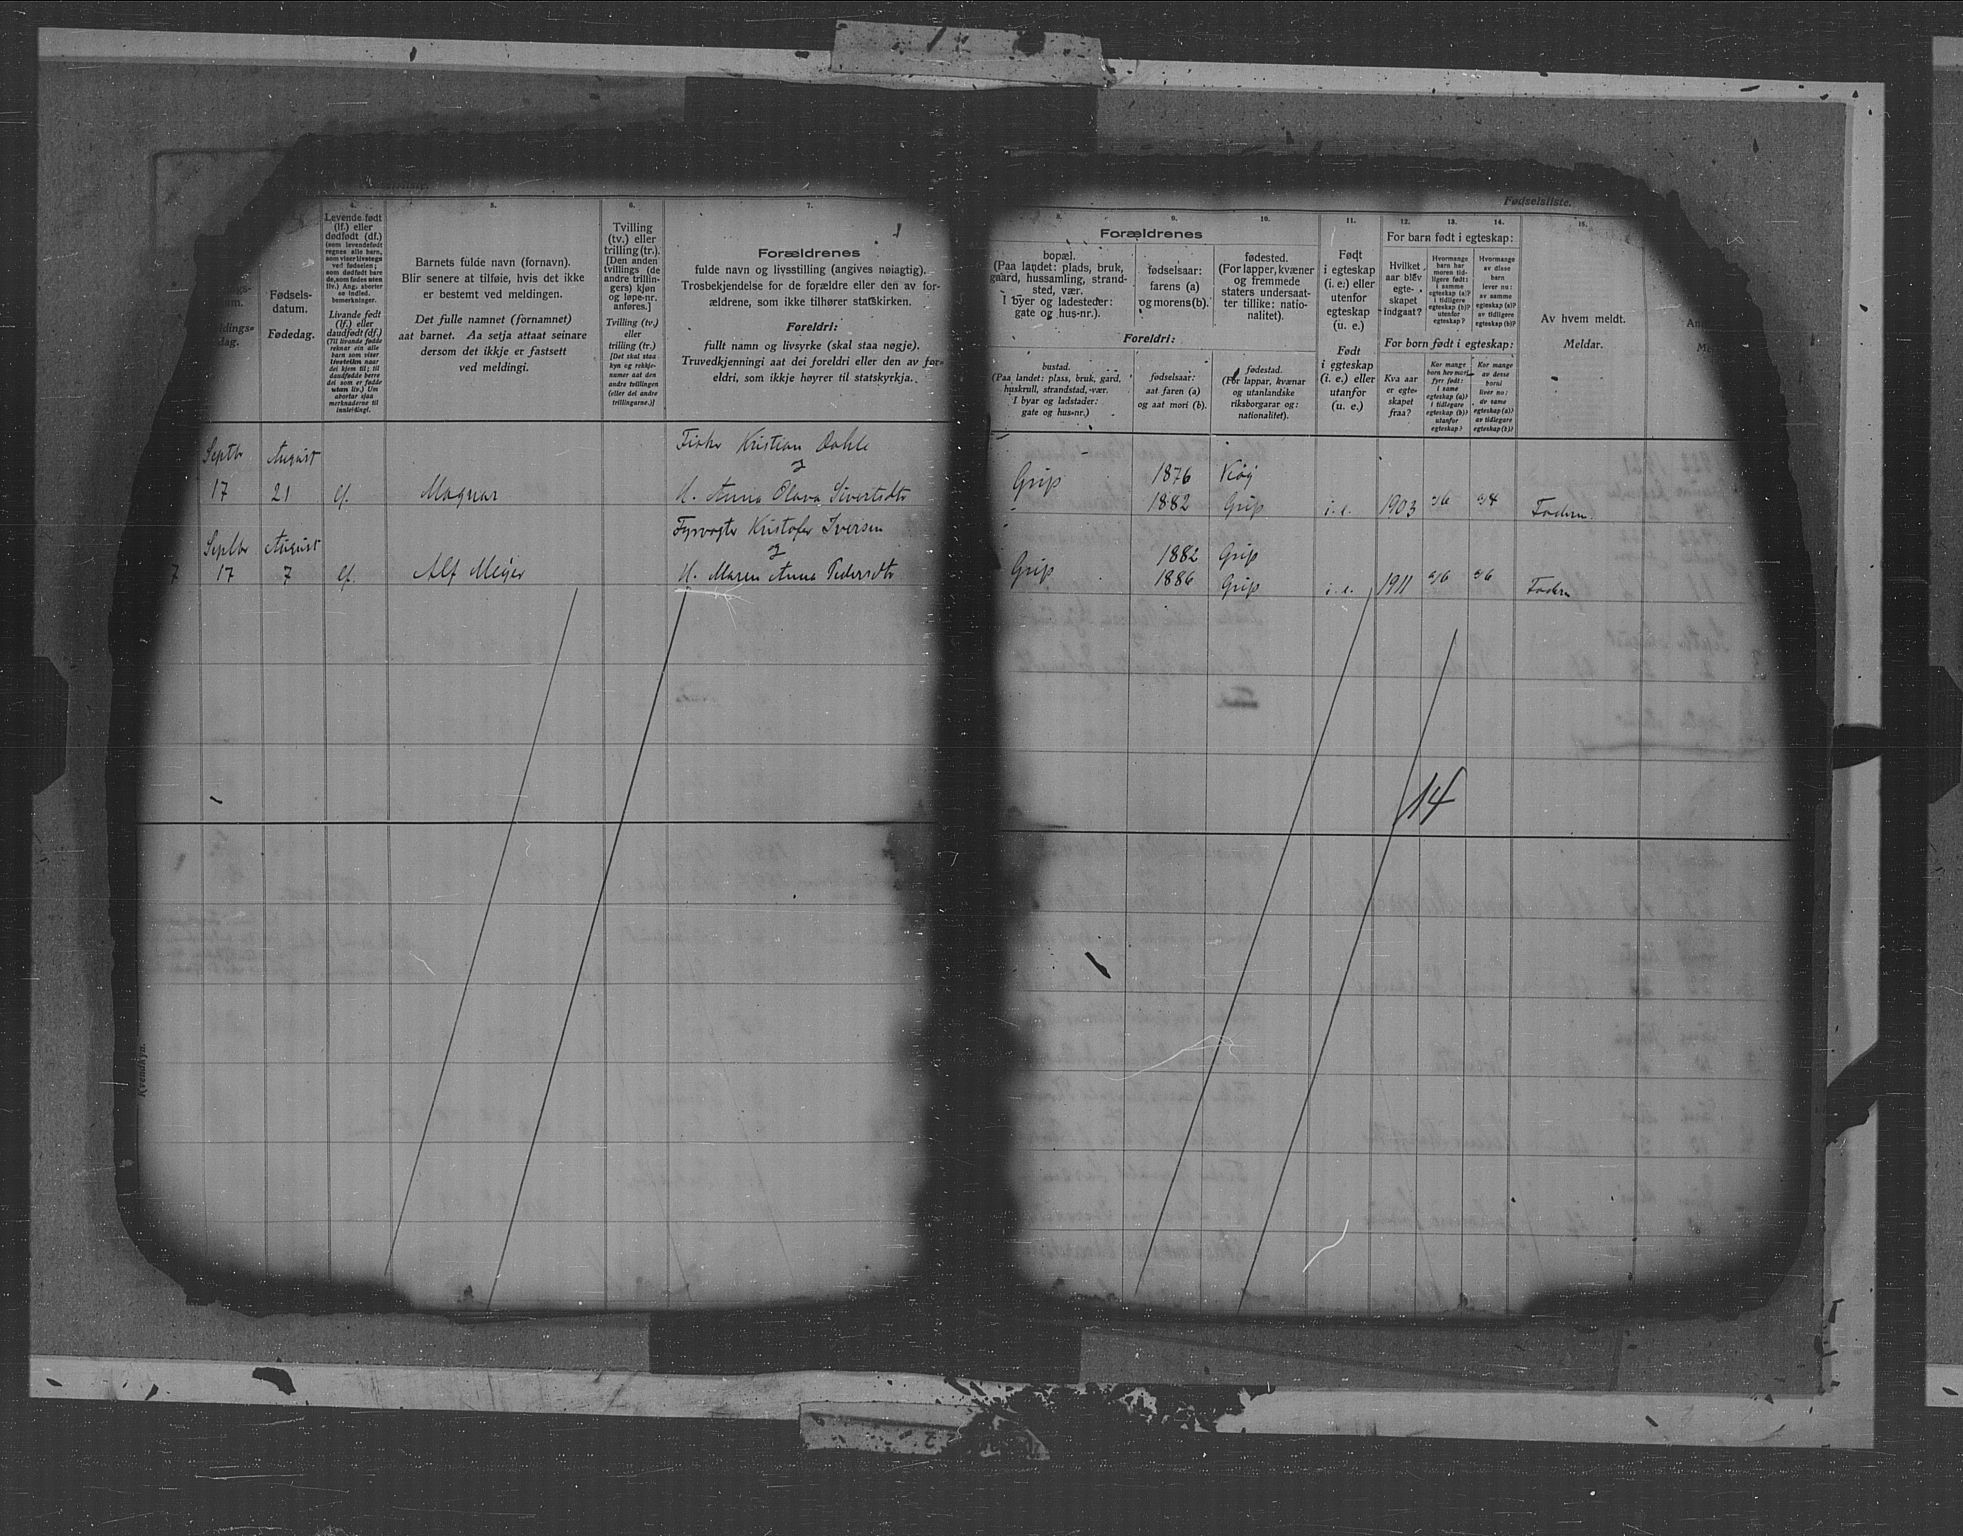 Fødselsliste.
4.
Levende født
(lf.) eller
dødfødt (df.)
(som levendefødt
regnes alle barn,
som viser livstegn
ved fødselen;
som dødfødt bare
de, som fødes uten
liv.) Ang. aborter
se indled.
bemerkninger.
Livande født
(lf.) eller
daudfødt (df.)
(Til livande fødde
reknar ein alle
barn som viser
livsteikn naar
dei kjem til; til
daudfødde berre
dei som er fødde
utan liv.) Um
abortar sjaa
merknaderne til
innleidingi.
Fødsels-
datum.
Fødedag.
5.
Barnets fulde navn (fornavn).
Blir senere at tilføie, hvis det ikke
er bestemt ved meldingen.
Det fulle namnet (fornamnet)
aat barnet. Aa setja attaat seinare
dersom det ikkje er fastsett
ved meldingi.
6.
Tvilling
(tv.) eller
trilling (tr.).
[Den anden
tvillings (de
andre trillin-
gers) kjøn
og løpe-nr.
anføres.]
Tvilling (tv.)
eller
trilling (tr.)
[Det skal staa
kyn og rekkje-
numer aat den
andre tvillingen
(eller dei andre
trillingarne.)]
7.
Forældrenes
fulde navn og livsstilling (angives nøiagtig).
Trosbekjendelse for de forældre eller den av for-
ældrene, som ikke tilhører statskirken.
Foreldri:
fullt namn og livsyrke (skal staa nøgje).
Truvedkjenningi aat dei foreldri eller den av for-
eldri, som ikkje høyrer til statskyrkja.
8.
9.
10.
11.
12.
13.
14.
15.
Forældrenes
bopæl.
(Paa landet: plads, bruk,
gaard, hussamling, strand-
sted, vær.
I byer og ladesteder:
gate og hus-nr.).
fødselsaar:
farens (a)
og morens (b).
fødested.
(For lapper, kvæner
og fremmede
staters undersaat-
ter tillike: natio-
nalitet).
Foreldri:
bustad.
(Paa landet: plass, bruk, gard,
huskrull, strandstad, vær.
I byar og ladstader:
gate og hus-nr.)
fødselsaar:
aat faren (a)
og aat mori (b).
fødestad.
(For lappar, kvænar
og utanlandske
riksborgarar og:
nationalitet).
Født
i egteskap
(i. e.) eller
utenfor
egteskap
(u. e.)
Født
i egteskap
(i. e.) eller
utanfor
(u. e.)
For barn født i egteskap:
Hvilket
aar blev
egte-
skapet
indgaat?
Hvormange
barn har
moren tid-
ligere født:
i samme
egteskap (a)?
i tidligere
egteskap (b)?
utenfor
egteskap?
Hvormange
av disse
barn
lever nu:
av samme
egteskap (a)?
av tidligere
egteskap (b)?
For born født i egteskap:
Kva aar
er egte-
skapet
fraa?
Kor mange
born hev mori
fyrr født:
i same
egteskap (a)?
i tidlegare
egteskap (b)?
utanfor
egteskap?
Kor mange
av desse
borni
liver no:
av same
egteskap (a)?
av tidlegare
egteskap (b)?
Av hvem meldt.
Meldar.
Septbr August Fisker Kristian Dahle
og
17 21 lf. Magnar H. Anna Olava Sivertsdtr
Grip 1876
1882 Grip i. e. 1903 a/6 a/4 Faderen
Septbr August Fyrvogter Kristofer Iversen
og
7 17 7 lf. Alf Meijer H. Maren Anna Pedersdtr
Grip 1882 Grip
1886 Grip i. e. 1911 a/6 a/6 Faderen
14
Kvendkyn.